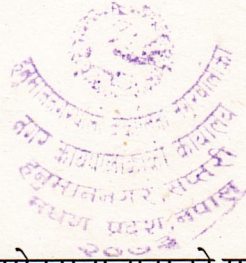 हनुमाननगर कङ्कालिनी नगरपालिका
नगर कार्यपालिकाको कार्यालय
हनुमाननगर, सप्तरी
मधेश प्रदेश, नेपाल
२०७३